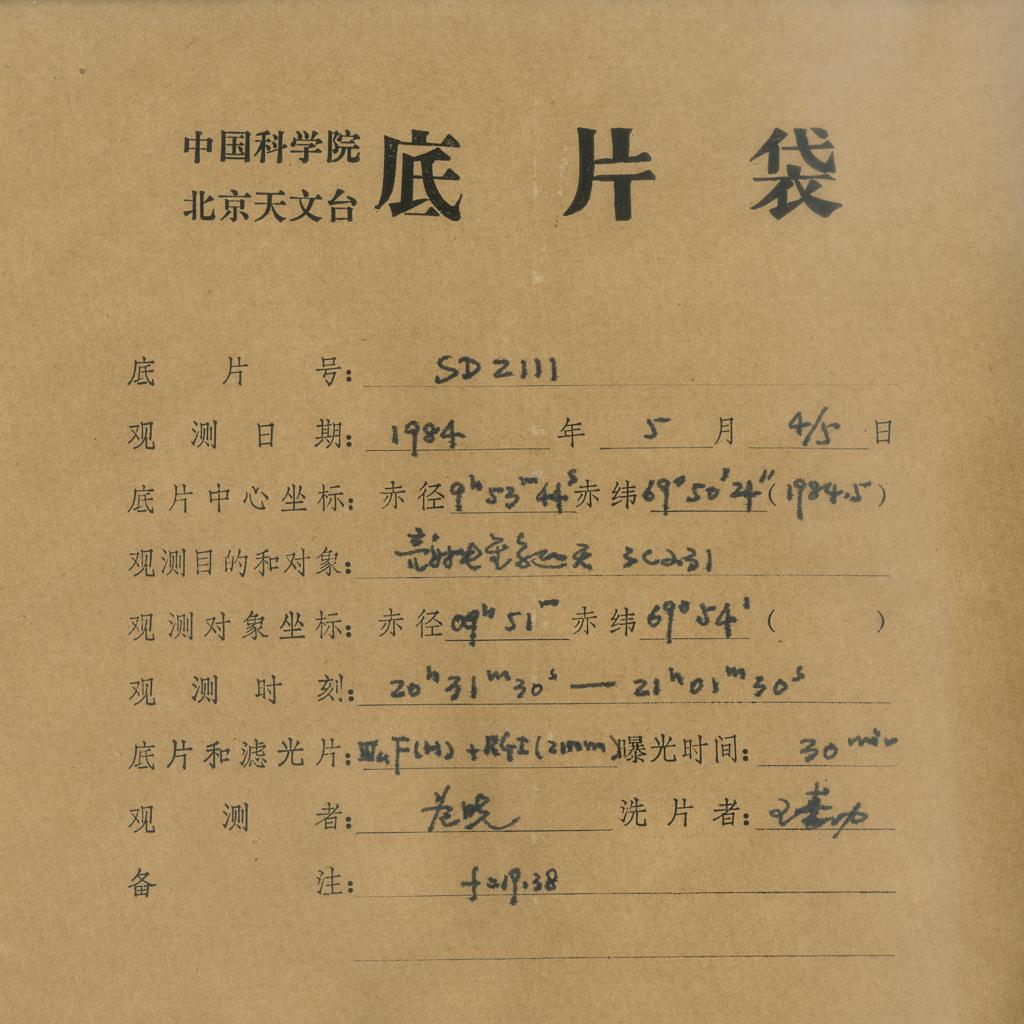 中国科学院
北京天文台
底片袋
底片号: SD 2111
观测日期: 1984 年 5 月 4/5 日
底片中心坐标: 赤径 9ʰ53ᵐ44ˢ 赤纬 69°50′24″ (1984.5)
观测目的和对象: 3C231
观测对象坐标: 赤径 09ʰ51ᵐ 赤纬 69°54′ ( )
观测时刻: 20ʰ31ᵐ30ˢ — 21ʰ01ᵐ30ˢ
底片和滤光片: F(H) + RG1(2mm) 曝光时间: 30 min
观测者: 洗片者:
备注: f=19.38